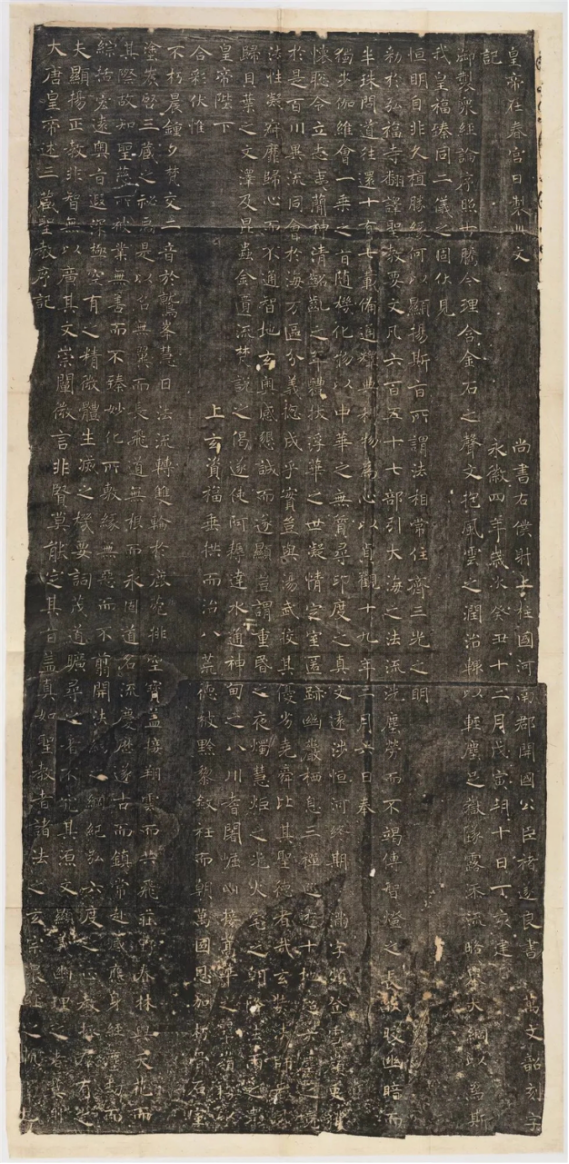 大唐皇帝述三藏聖教序記
夫顯揚正教非智無以廣其文崇闡微言非賢莫能定其旨蓋真如聖教者諸法之玄宗眾經之軌
綜括宏遠奧旨遐深極空有之精微體生滅之機要詞茂道曠尋之者不究其源文顯義幽理之者莫測
其際故知聖慈所被業無善而不臻妙化所敷緣無惡而不翦開法網之綱紀弘六度之正教拯群有之
塗炭啟三藏之秘扃是以名無翼而長飛道無根而永固道名流慶歷遂古而鎮常赴感應身經塵劫而
不朽晨鐘夕梵交二音於鷲峯慧日法流轉雙輪於鹿菀排空寶蓋接翔雲而共飛莊野春林與天花而
合彩伏惟
皇帝陛下上玄資福垂拱而治八荒德被黔黎斂衽而朝萬國恩加朽骨石室
歸貝葉之文澤及昆蟲金匱流梵說之偈遂使阿耨達水通神甸之八川耆闍崛山接嵩華之翠嶺竊以
法性凝寂靡歸心而不通智地玄奧感懇誠而遂顯豈謂重昏之夜燭慧炬之光火宅之朝降法雨之澤
於是百川異流同會於海萬區分義總成乎實豈與湯武校其優劣堯舜比其聖德者哉玄奘法師者夙
懷聰令立志夷簡神清齠齔之年體拔浮華之世凝情定室匿跡幽巖栖息三禪巡遊十地超六塵之境
獨步伽維會一乘之旨隨機化物以中華之無質尋印度之真文遠涉恒河終期滿字頻登雪嶺更獲
半珠問道往還十有七載備通釋典利物為心以貞觀十九年二月六日奉
勑於弘福寺翻譯聖教要文凡六百五十七部引大海之法流洗塵勞而不竭傳智燈之長焰皎幽闇而
恒明自非久植勝緣何以顯揚斯旨所謂法相常住齊三光之明
我皇福臻同二儀之固伏見
御製眾經論序照古騰今理含金石之聲文抱風雲之潤治輒以輕塵足嶽墜露添流略舉大綱以為斯
記
永徽四年歲次癸丑十二月戊寅朔十日丁亥建
皇帝在春宮日製此文
尚書右僕射上柱國河南郡開國公臣褚遂良書 萬文韶刻字